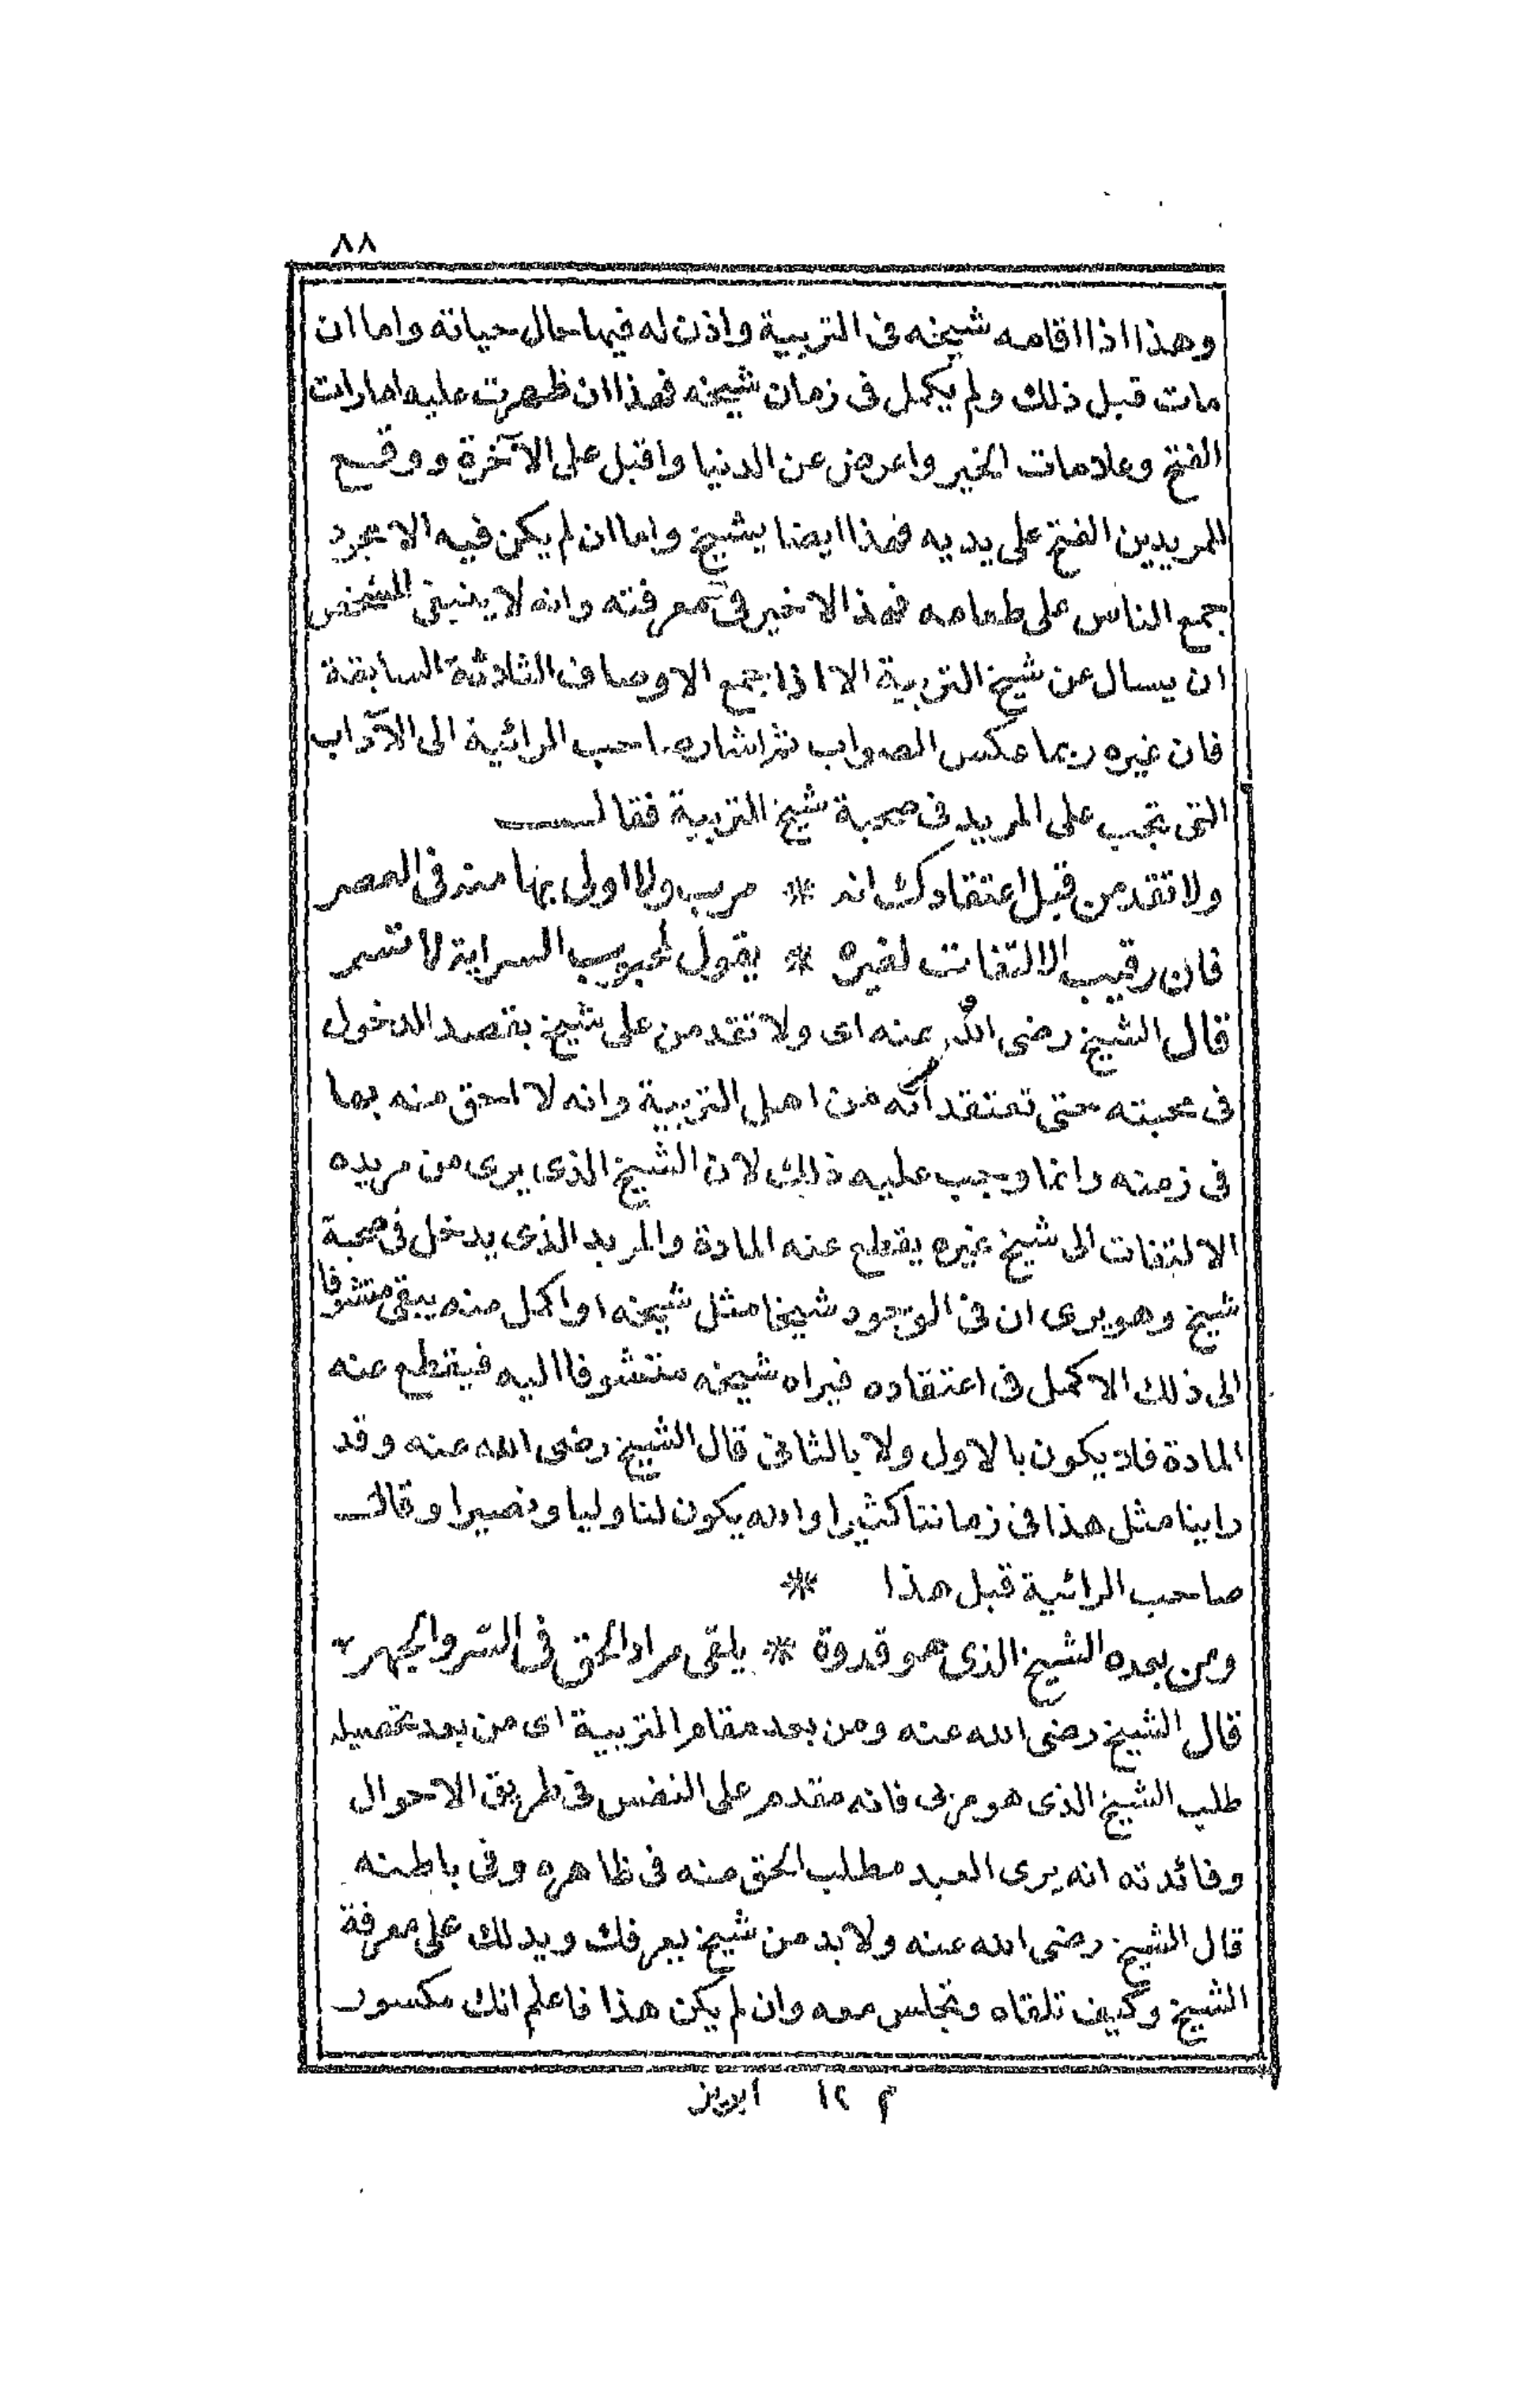 ٨٨
وهذا اذا اقامه شيخه فى التربية واذن له فيها حال حياته واما ان
مات قبل ذلك ولم يكمل فى زمان شيخه فهذا ان ظهرت عليه امارات
الفتح وعلامات الخير واعرض عن الدنيا واقبل على الآخرة ووقع
للمريدين الفتح على يديه فهذا ايضا يشيخ واما ان لم يكن فيه الا مجرد
جمع الناس على طعامه فهذا لاخير فى معرفته وانه لا ينبغى للشخص
ان يسال عن شيخ التربية الا اذا جمع الاوصاف الثلاثة السابقة
فان غيره ربما عكس الصواب ثم اشار صاحب الرائية الى الآداب
التى تجب على المريد فى صحبة شيخ التربية فقال
ولا تقدمن قبل اعتقادك انه * مرب ولا اولى بها منه فى العصر
فان رقيب الالتفات لغيره * يقول لمحبوب السراية لا تسر
قال الشيخ رضى الله عنه اى ولا تقدمن على شيخ بقصد الدخول
فى صحبته حتى تعتقد انه من اهل التربية وانه لا احق منه بها
فى زمنه وانما وجب عليه ذلك لان الشيخ الذى يرى من مريده
الالتفات الى شيخ غيره يقطع عنه المادة والمريد الذى يدخل فى صحبة
شيخ وهو يرى ان فى الوجود شيخا مثل شيخه او اكمل منه يبقى متشوفا
الى ذلك الاكمل فى اعتقاده فيراه شيخه متشوفا اليه فيقطع عنه
المادة فلا يكون بالاول ولا بالثانى قال الشيخ رضى الله عنه وقد
راينا مثل هذا فى زماننا كثيرا والله يكون لنا وليا ونصيرا وقال
صاحب الرائية قبل هذا *
ومن بعده الشيخ الذى هو قدوة * يلقى مراد الحق فى السر والجهر *
قال الشيخ رضى الله عنه ومن بعد مقام التربية اى من بعد تحصيله
طلب الشيخ الذى هو مربى فانه مقدم على النفس فى طريق الاحوال
وفائدته انه يرى العبد مطلب الحق منه فى ظاهره وفى باطنه
قال الشيخ رضى الله عنه ولابد من شيخ يعرفك ويدلك على معرفة
الشيخ وكيف تلقاه وتجلس معه وان لم يكن هذا فاعلم انك مكسور
م ١٢ ابريز